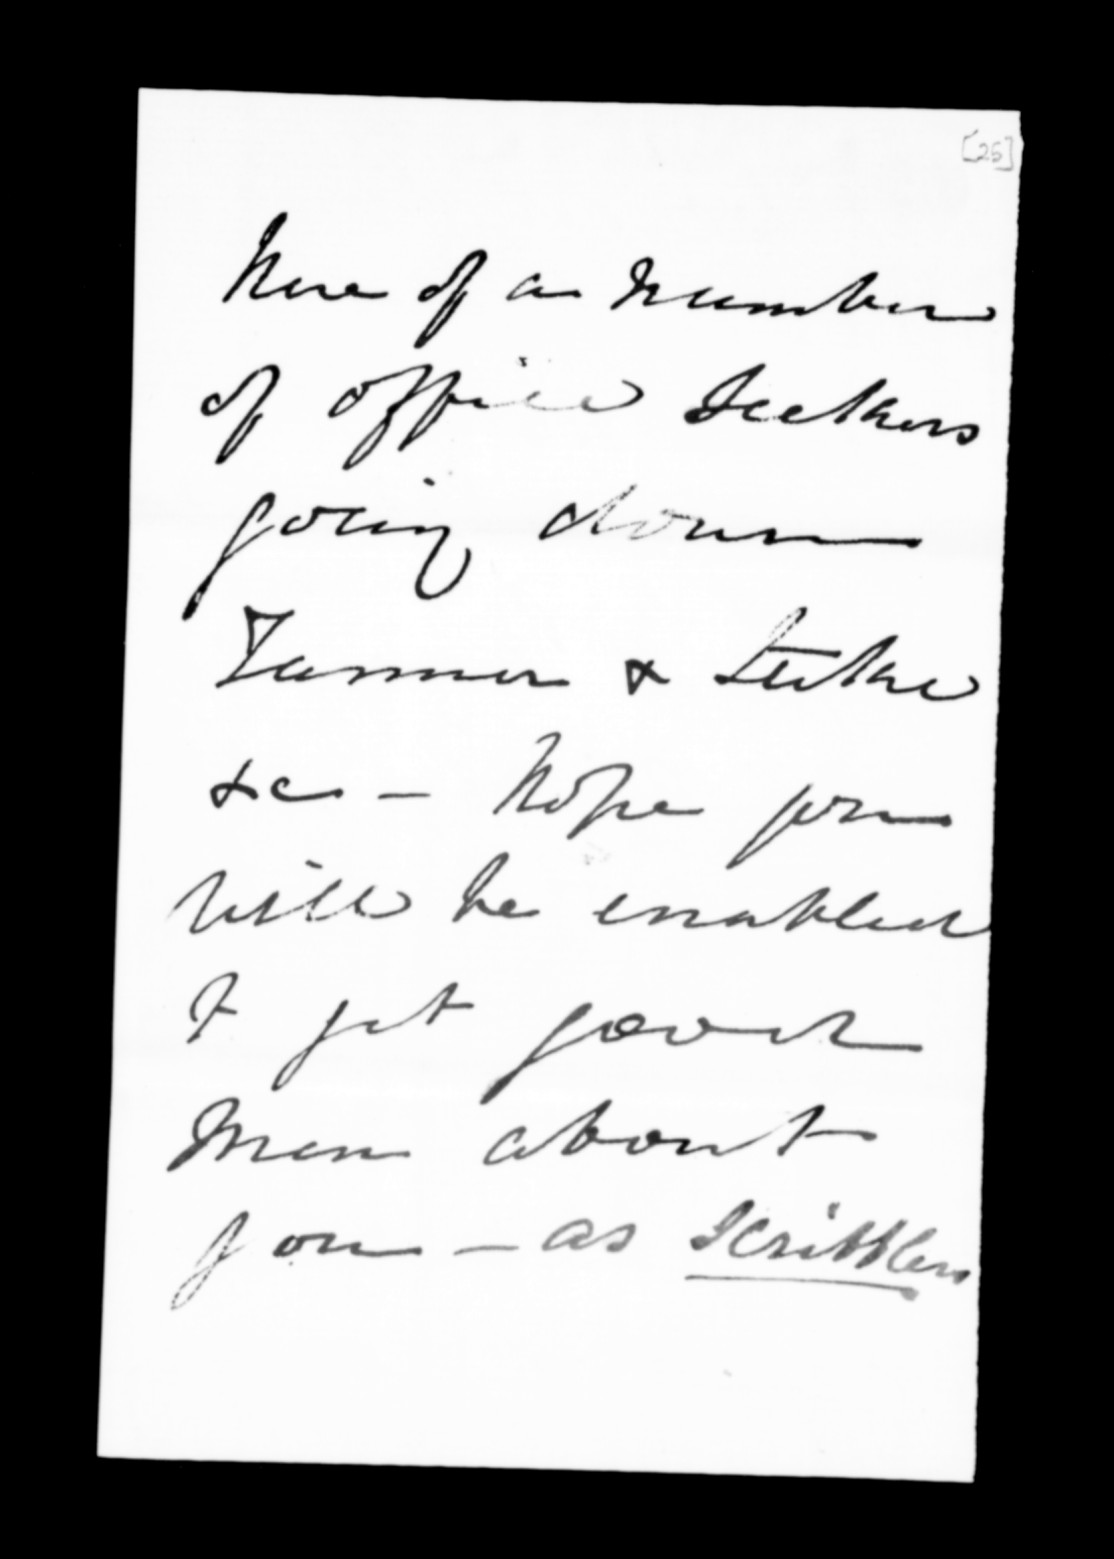 [25]
here of a number
of office seekers
going down
Tanner &
&c — hope you
will be enabled
to get good
men about
you — as scribblers